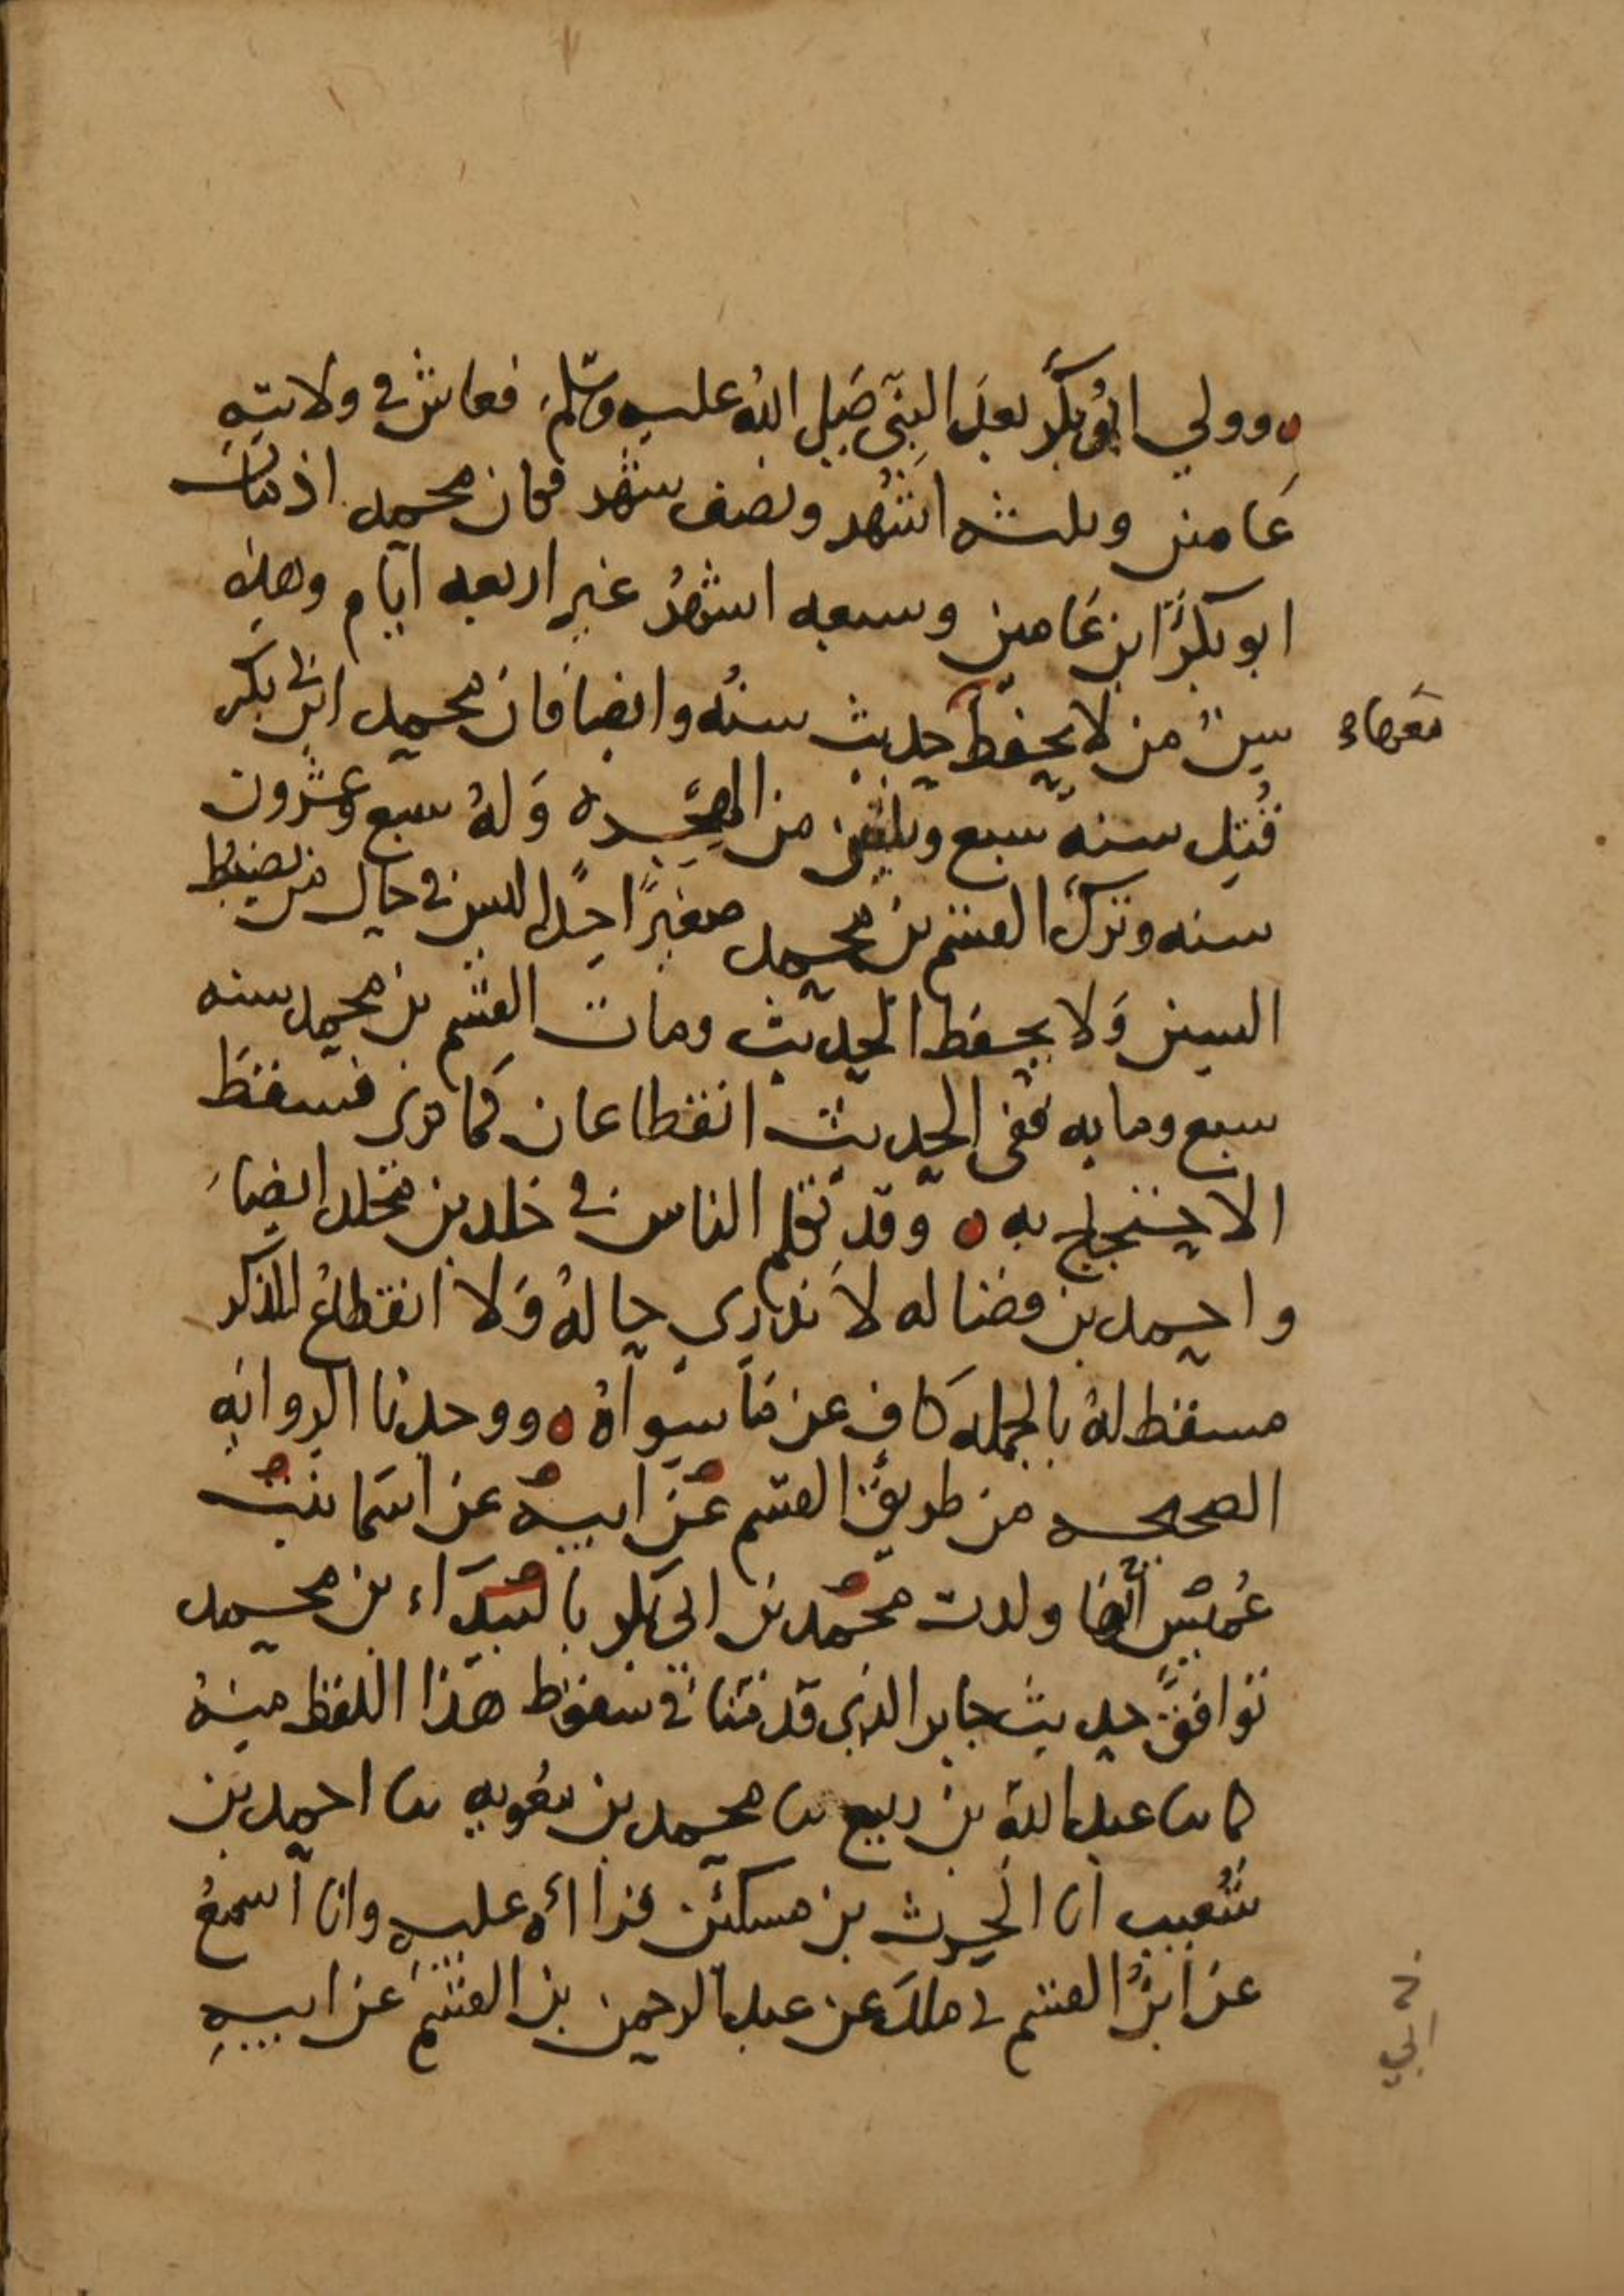 وولي ابو بكر بعد النبي صلى الله عليه وسلم فعاش في ولايته
عامين وثلثه اشهر ونصف شهر فكان محمد اذ مات
ابو بكر ابن عامين وسبعه اشهر غير اربعه ايام وهذه
سن من لا يحفظ حديث سنه وايضا فان محمد ابن ابي بكر
قتل سنه سبع وثلثين من الهجره وله سبع وعشرون
سنه وترك القسم بن محمد صغيرا جدا ليس في حال من يضبط
السنن ولا يحفظ الحديث ومات القسم بن محمد سنه
سبع ومايه ففي الحديث انقطاعان كما ترى فسقط
الاحتجاج به وقد تكلم الناس في خلد بن مخلد ايضا
واحمد بن فضاله لا ندري حاله ولا انقطاع المذكر
مسقط له بالجمله كاف عن ما سواه ووجدنا الروايه
الصحيحه من طريق القسم عن ابيه عن اسما بنت
عميس انها ولدت محمد بن ابي بكر بالبيداء بن محمد
توافق حديث جابر الذي قدمنا في سقوط هذا اللفظ منه
كما نا عبد الله بن ربيع نا محمد بن معويه نا احمد بن
شعيب انا الحرث بن مسكين قراءه عليه وانا اسمع
عن ابن القسم ني ملك عن عبد الرحمن بن القسم عن ابيه
ابي